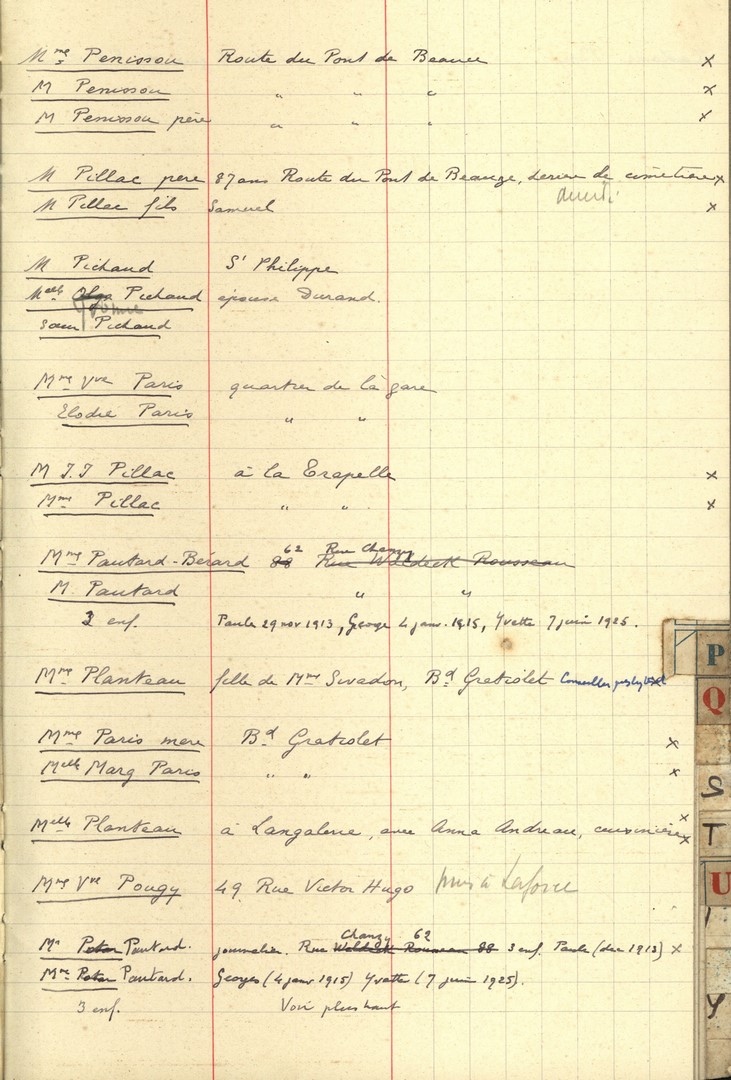 Mme Penissou Route du Pont de Beauze x
M Penissou " " " x
M Penissou père " " " x
M Pillac pere 87 ans Route du Pont de Beauze, derriere le cimetiere x
M Pillac fils Samuel x
M Pichaud St Philippe
Melle Olga Pichaud epouse Durand.
Yvonne
Sœur Pichaud
Mme Vve Paris quartier de la gare
Elodie Paris " "
M J.J Pillac à la Trapelle x
Mme Pillac " " x
62 Rue Chanzy
Mme Pautard-Bérard 88 Rue Waldeck Rousseau
M. Pautard " "
3 enf. Paule 29 nov 1913, George 4 janv. 1915, Yvette 7 juin 1925.
Mme Planteau fille de Mme Sivadon, Bd Gratiolet Conseiller presbytéral
Mme Paris mere Bd Gratiolet x
Melle Marg Paris " " x
x
Melle Planteau à Langalerie, avec Anna Andreau, cuisinière x
Mme Vve Pougy 49 Rue Victor Hugo puis à Laforce
Chanzy 62
Mr Peter Pautard. journalier. Rue Waldeck Rousseau 88 3 enf. Paule (dec 1913) x
Mme Peter Pautard. Georges (4 janv 1915) Yvette (7 juin 1925).
3 enf. Voir plus haut
P
Q
S
T
U
Y